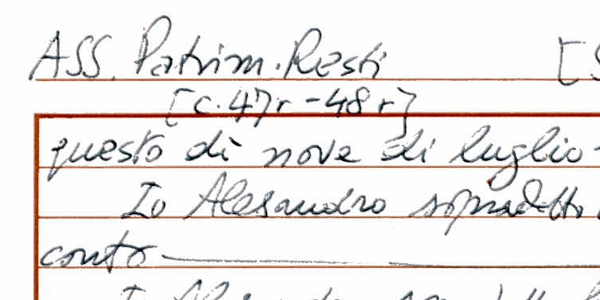 ASS. Patrim. Resti [S
[c. 47r - 48r]
questo dì nove di luglio
Io Alesandro sopradetto
conto
Io